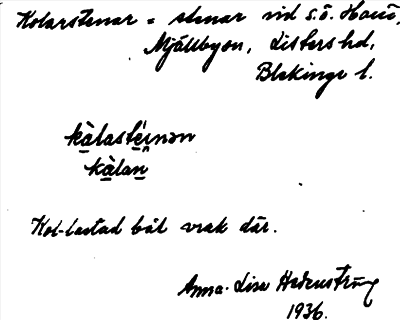 Kolarstenar = stenar vid s.ö. Hanö,
Mjällbyon, Listers hd,
Blekinge l.
kàlastérnən
kàlan
Kol-lastad båt vrak där.
Anna-Lisa Hedenström
1936.